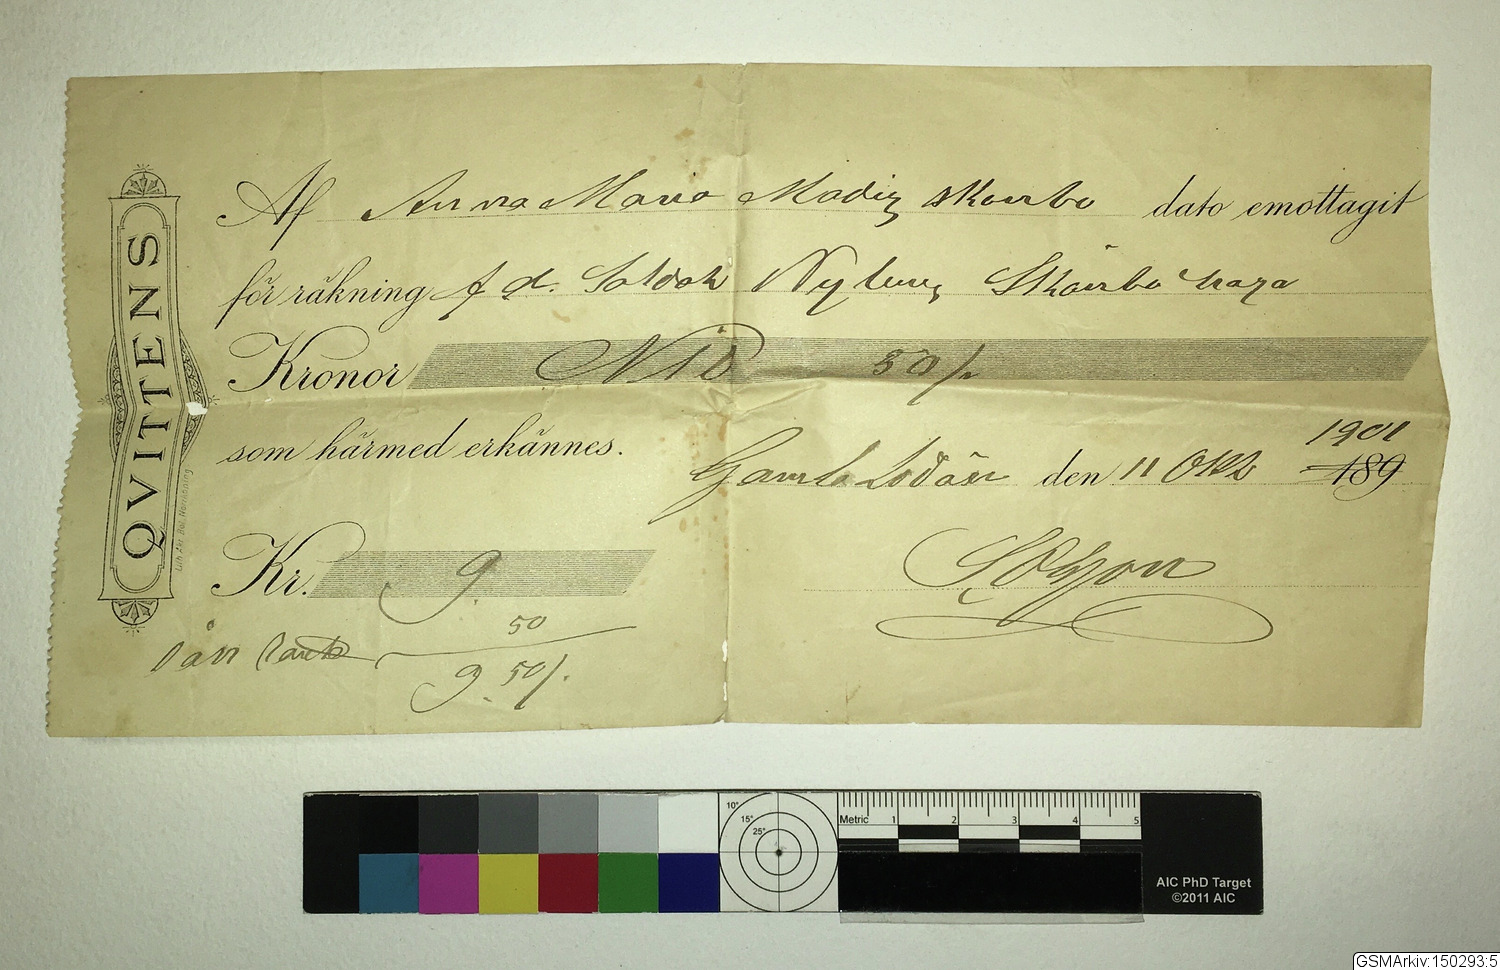 QVITTENS
Af Anna Maria Modig Skanbo dato emottagit
för räkning f d. Soldat Nyberg Skanbo
Kronor Nio 50/-
som härmed erkännes.
Gamla Lödöse den 11 Okt 1901
189
Kr. 9.
50
9.50/.
Lith. Akt. Bol. Norrköping
10°
15°
25°
Metric 1 2 3 4 5
AIC PhD Target
©2011 AIC
GSMArkiv:150293:5